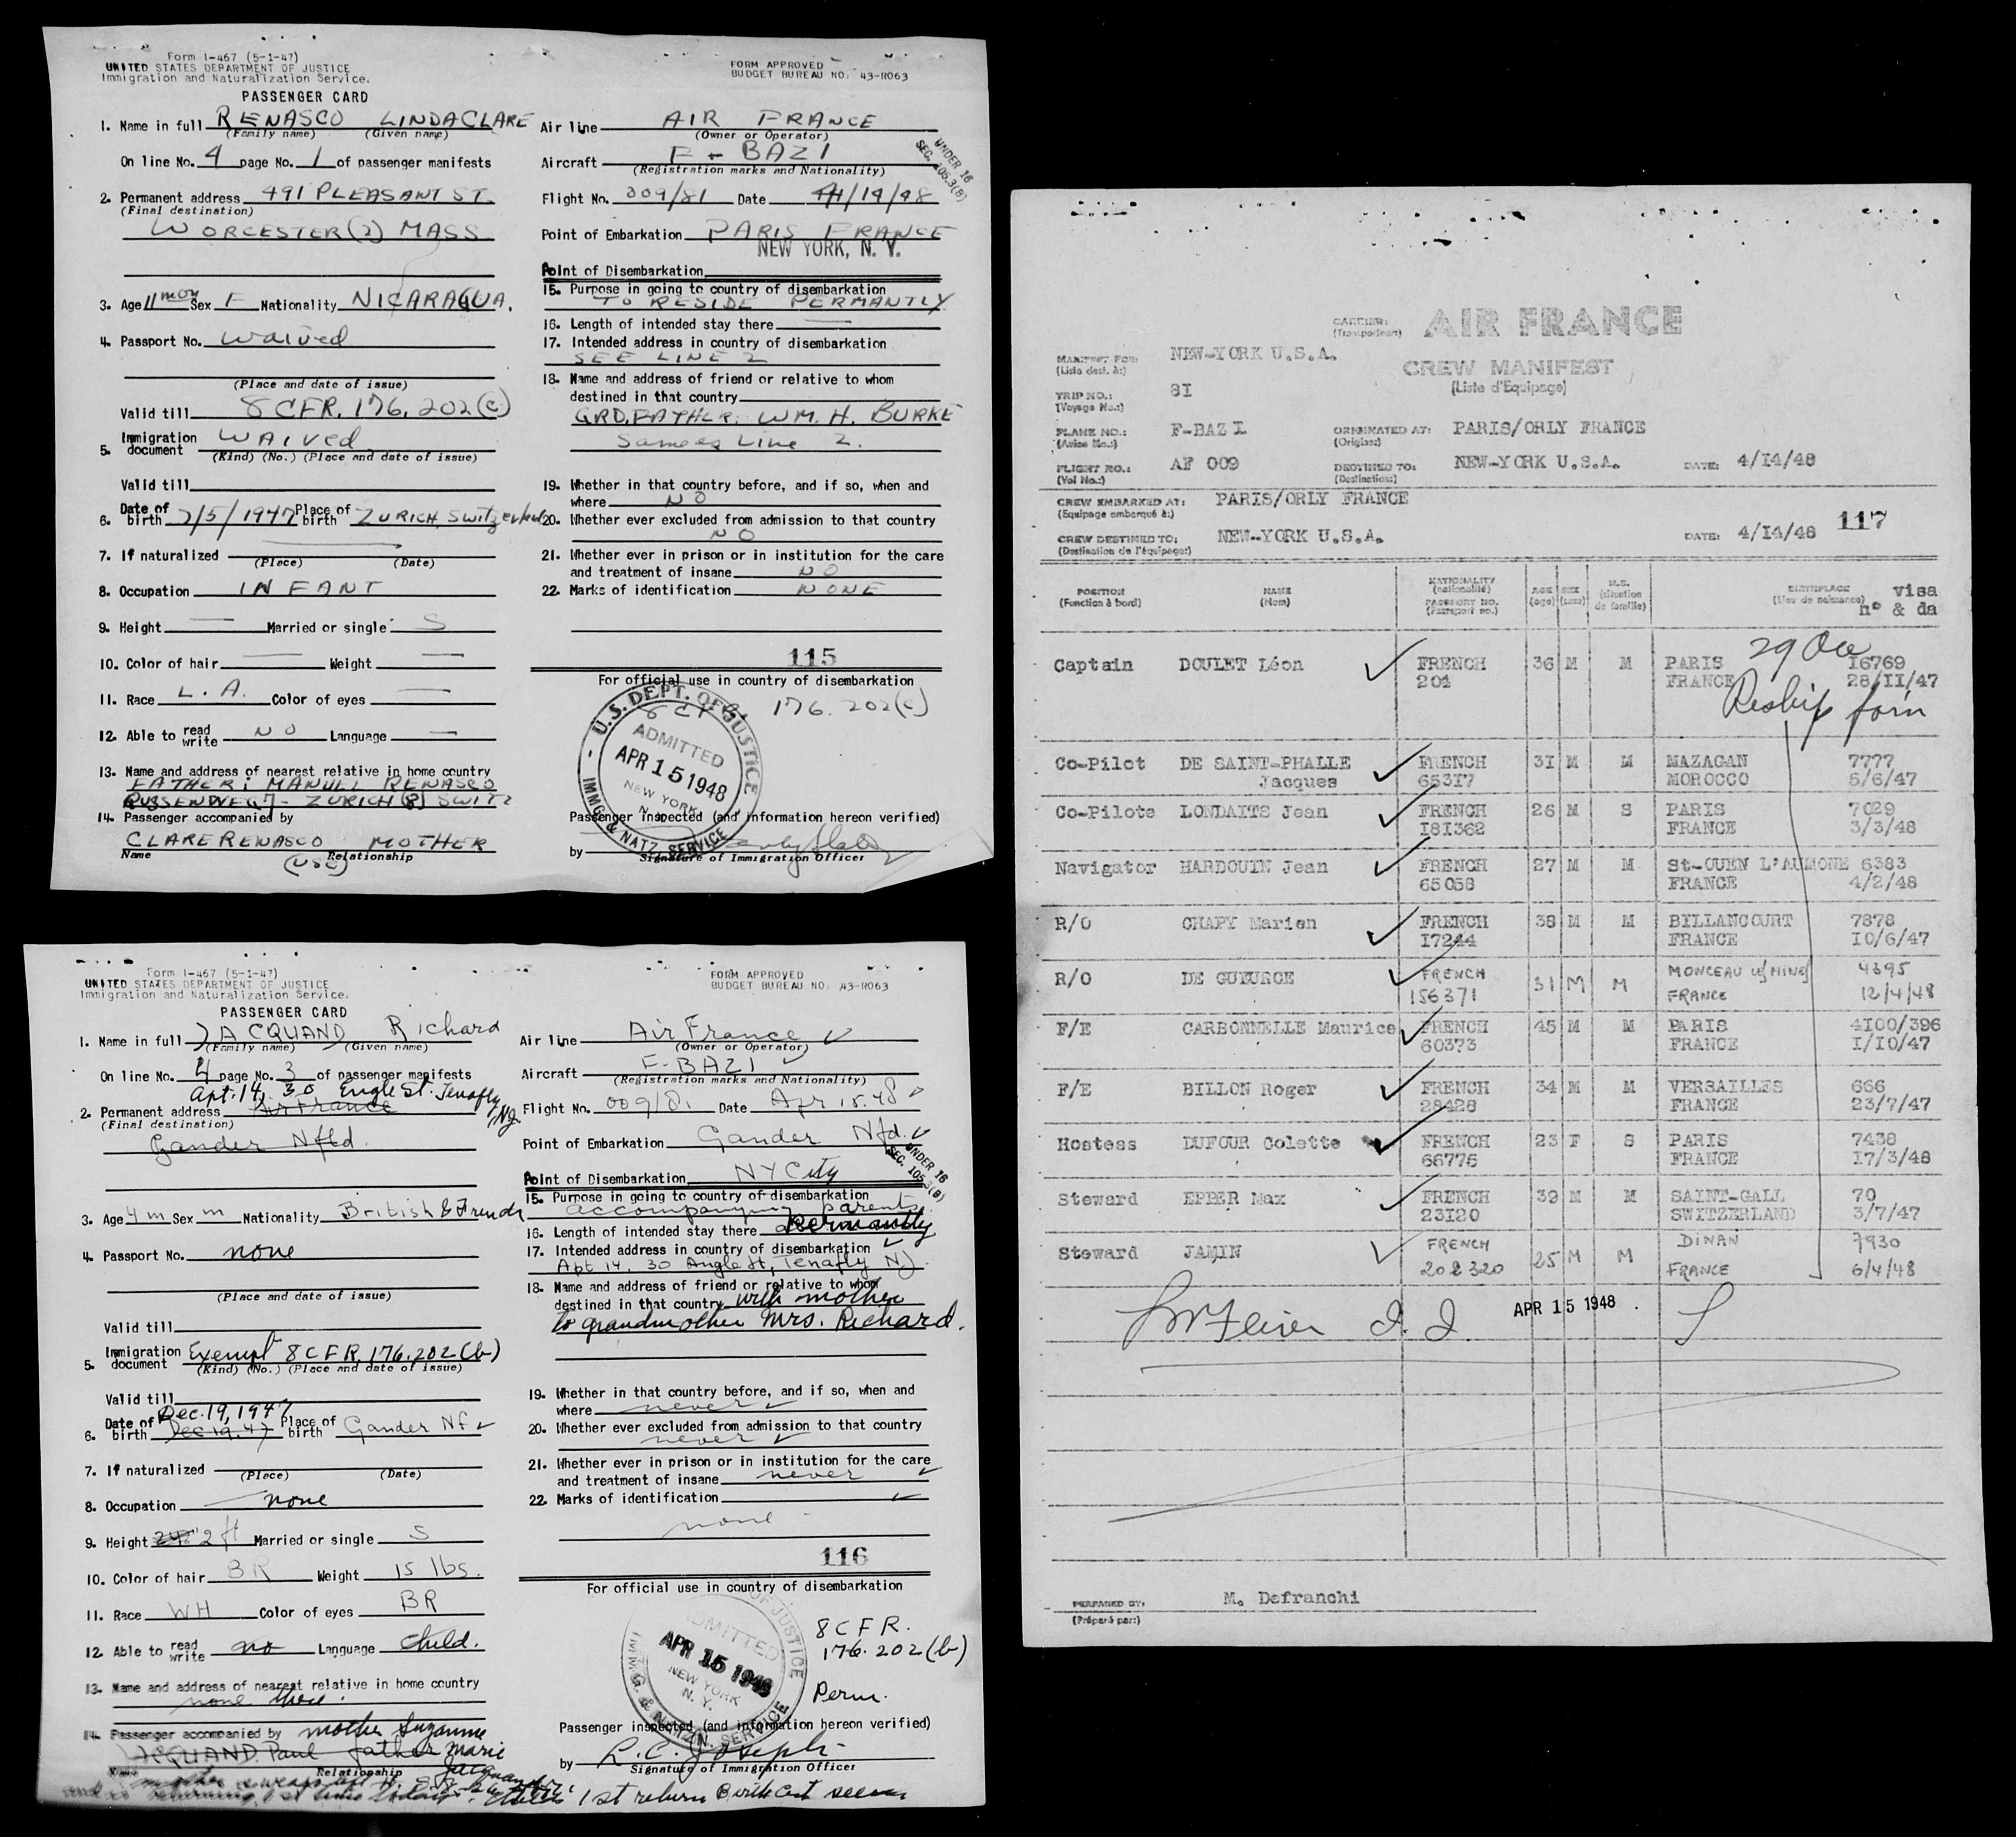 Form I-467 (5-1-47)
UNITED STATES DEPARTMENT OF JUSTICE
Immigration and Naturalization Service.
PASSENGER CARD
FORM APPROVED
BUDGET BUREAU NO. 43-R063
1. Name in full RENASCO LINDACLARE
(Family name) (Given name)
On line No. 4 page No. 1 of passenger manifests
2. Permanent address 491 PLEASANT ST.
(Final destination)
WORCESTER (2) MASS
3. Age 11 mon Sex F Nationality NICARAGUA.
4. Passport No. waived
(Place and date of issue)
Valid till 8 CFR. 176.202(c)
5. Immigration document WAIVed
(Kind) (No.) (Place and date of issue)
Valid till
6. Date of birth 7/5/1947 Place of birth ZURICH, Switzerland
7. If naturalized
(Place) (Date)
8. Occupation INFANT
9. Height — Married or single S
10. Color of hair — Weight —
11. Race L.A. Color of eyes —
12. Able to read write NO Language —
13. Name and address of nearest relative in home country
FATHER: MANUEL RENASCO
ZURICH (8) SWITZ
14. Passenger accompanied by
CLARE RENASCO MOTHER
Name Relationship
(USC)
Air line AIR FRANCE
(Owner or Operator)
Aircraft F-BAZI
(Registration marks and Nationality)
UNDER 16
SEC. 105.3(8)
Flight No. 009/81 Date 4/14/48
Point of Embarkation PARIS FRANCE
NEW YORK, N. Y.
Point of Disembarkation
15. Purpose in going to country of disembarkation
TO RESIDE PERMANTLY
16. Length of intended stay there —
17. Intended address in country of disembarkation
SEE LINE 2
18. Name and address of friend or relative to whom
destined in that country
GRD.FATHER: WM. H. BURKE
Same as Line 2.
19. Whether in that country before, and if so, when and
where NO
20. Whether ever excluded from admission to that country
NO
21. Whether ever in prison or in institution for the care
and treatment of insane NO
22. Marks of identification NONE
115
For official use in country of disembarkation
8 CFR. 176.202(c)
U.S. DEPT. OF JUSTICE
ADMITTED
APR 15 1948
NEW YORK
N. Y.
IMMG. & NATZ. SERVICE
Passenger inspected (and information hereon verified)
by
Signature of Immigration Officer
Form I-467 (5-1-47)
UNITED STATES DEPARTMENT OF JUSTICE
Immigration and Naturalization Service.
PASSENGER CARD
FORM APPROVED
BUDGET BUREAU NO. 43-R063
1. Name in full JACQUAND Richard
(Family name) (Given name)
On line No. 4 page No. 3 of passenger manifests
Apt. 14, 30 Engle St. Tenafly NJ
2. Permanent address Air France
(Final destination)
Gander Nfld.
3. Age 4 m Sex m Nationality British & French
4. Passport No. none
(Place and date of issue)
Valid till
5. Immigration document Exempt 8 CFR. 176.202(b)
(Kind) (No.) (Place and date of issue)
Valid till
Dec. 19, 1947
6. Date of birth Dec 19. 47 Place of birth Gander Nf
7. If naturalized
(Place) (Date)
8. Occupation none
9. Height 24" 2 ft Married or single S
10. Color of hair BR Weight 15 lbs.
11. Race WH Color of eyes BR
12. Able to read write no Language child.
13. Name and address of nearest relative in home country
none there.
14. Passenger accompanied by mother Suzanne
JACQUAND Paul father Marie
Name Relationship Jacquand
1st return Birth Cert seen
Air line Air France
(Owner or Operator)
Aircraft F-BAZI
(Registration marks and Nationality)
Flight No. 009/81 Date Apr 15. 48
Point of Embarkation Gander Nfd.
UNDER 16
SEC. 105.3(8)
Point of Disembarkation NY City
15. Purpose in going to country of disembarkation
accompanying parents
16. Length of intended stay there permanently
17. Intended address in country of disembarkation
Apt 14. 30 Angle St, Tenafly NJ.
18. Name and address of friend or relative to whom
destined in that country with mother
to grandmother Mrs. Richard.
19. Whether in that country before, and if so, when and
where never
20. Whether ever excluded from admission to that country
never
21. Whether ever in prison or in institution for the care
and treatment of insane never
22. Marks of identification
none
116
For official use in country of disembarkation
OF JUSTICE
ADMITTED
APR 15 1948
NEW YORK
N. Y.
IMMG. & NATZN. SERVICE
8 CFR.
176.202(b)
Perm.
Passenger inspected (and information hereon verified)
by L. C. Joseph
Signature of Immigration Officer
CARRIER: (Transporteur) AIR FRANCE
MANIFEST FOR: (Liste dest. à:) NEW-YORK U.S.A.
CREW MANIFEST
(Liste d'Equipage)
TRIP NO.: (Voyage No.:) 8I
PLANE NO.: (Avion No.:) F-BAZ I
ORIGINATED AT: (Origine:) PARIS/ORLY FRANCE
FLIGHT NO.: (Vol No.:) AF 009
DESTINED TO: (Destination:) NEW-YORK U.S.A. DATE: 4/I4/48
CREW EMBARKED AT: (Equipage embarqué à:) PARIS/ORLY FRANCE
CREW DESTINED TO: (Destination de l'équipage:) NEW-YORK U.S.A. DATE: 4/I4/48 117
POSITION (Fonction à bord) NAME (Nom) NATIONALITY (nationalité) PASSPORT NO. (Passeport no.) AGE (age) SEX (sexe) M.S. (situation de famille) BIRTHPLACE (Lieu de naissance) visa n° & da
Captain DOULET Léon FRENCH 36 M M PARIS I6769
201 FRANCE 28/II/47
29 Dec
Reship forn
Co-Pilot DE SAINT-PHALLE FRENCH 3I M M MAZAGAN 7777
Jacques 653I7 MOROCCO 5/6/47
Co-Pilote LONDAITS Jean FRENCH 26 M S PARIS 7029
I8I362 FRANCE 3/3/48
Navigator HARDOUIN Jean FRENCH 27 M M St-OUEN L'AUMONE 6383
65058 FRANCE 4/2/48
R/O CHAPY Marien FRENCH 38 M M BILLANCOURT 7878
I7244 FRANCE I0/6/47
R/O DE GUEURCE FRENCH 31 M M MONCEAU 4395
156371 FRANCE 12/4/48
F/E CARBONNELLE Maurice FRENCH 45 M M PARIS 4I00/396
60373 FRANCE I/I0/47
F/E BILLON Roger FRENCH 34 M M VERSAILLES 666
28428 FRANCE 23/7/47
Hostess DUFOUR Colette FRENCH 23 F S PARIS 7438
66775 FRANCE I7/3/48
Steward EPPER Max FRENCH 39 M M SAINT-GALL 70
23I20 SWITZERLAND 3/7/47
Steward JAMIN FRENCH 25 M M DINAN 7930
202320 FRANCE 6/4/48
APR 15 1948
PREPARED BY: (Préparé par:) M. Defranchi